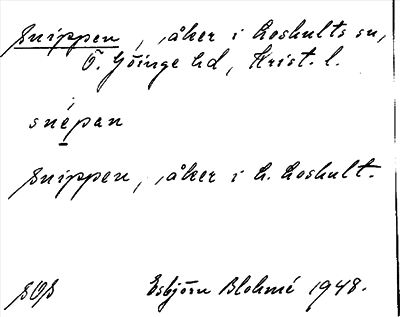 Snippen, åker i Loshults sn,
Ö. Göinge hd, Krist. l.
snépan
Snippen, åker i L. Loshult.
SOS
Esbjörn Blohmé 1948.